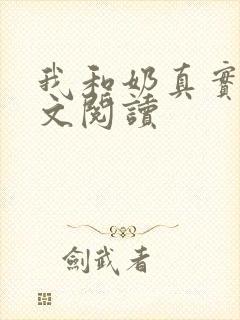 我和奶真實
文閱讀
劍武者